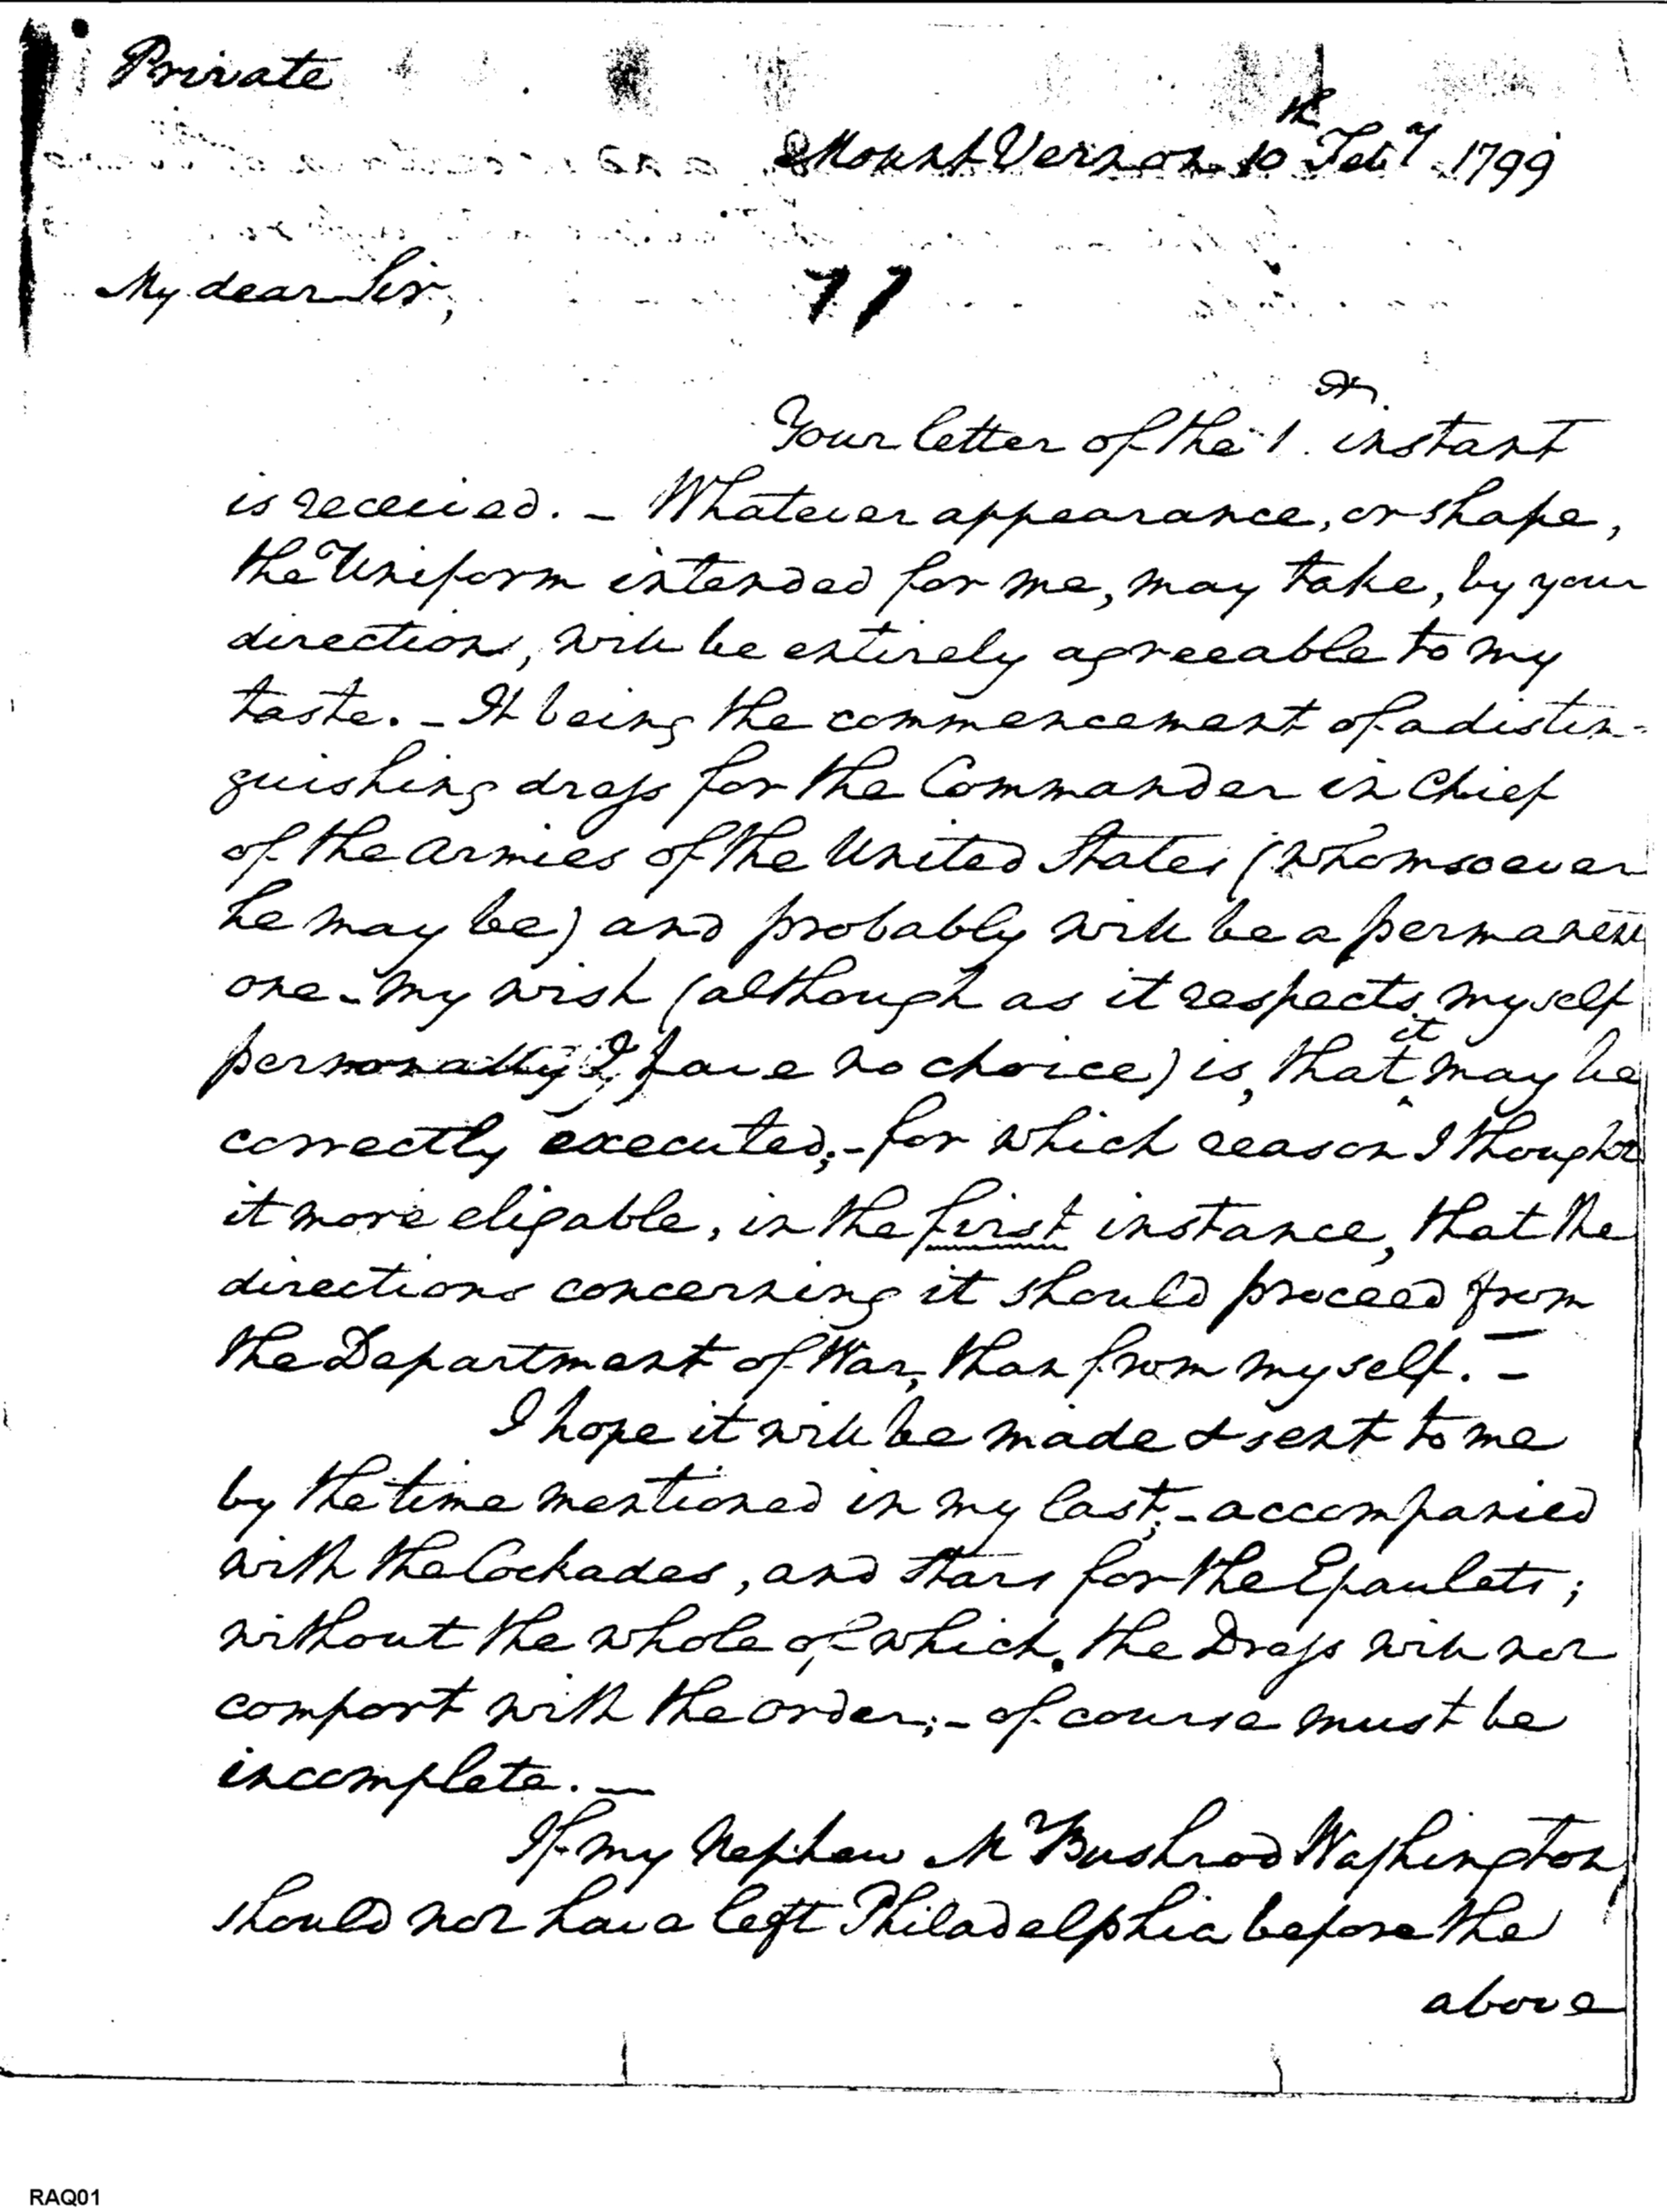 Private
Mount Vernon 10th Feby 1799
My dear Sir,
77
Your letter of the 1st. instant
is received. – Whatever appearance, or shape,
the Uniform intended for me, may take, by your
direction, will be entirely agreeable to my
taste. – It being the commencement of a distin-
guishing dress for the Commander in Chief
of the Armies of the United States (whomsoever
he may be) and probably will be a permanent
one – my wish (although as it respects myself
personally I have no choice) is, that it may be
correctly executed; – for which reason I thought
it more eligable, in the first instance, that the
directions concerning it should proceed from
the Department of War, than from myself. –
I hope it will be made & sent to me
by the time mentioned in my last; – accompanied
with the Cockades, and Stars for the Epaulets;
without the whole of which, the Dress will not
comport with the order; – of course must be
incomplete. —
If my Nephew Mr Bushrod Washington
should not have left Philadelphia before the
above
RAQ01